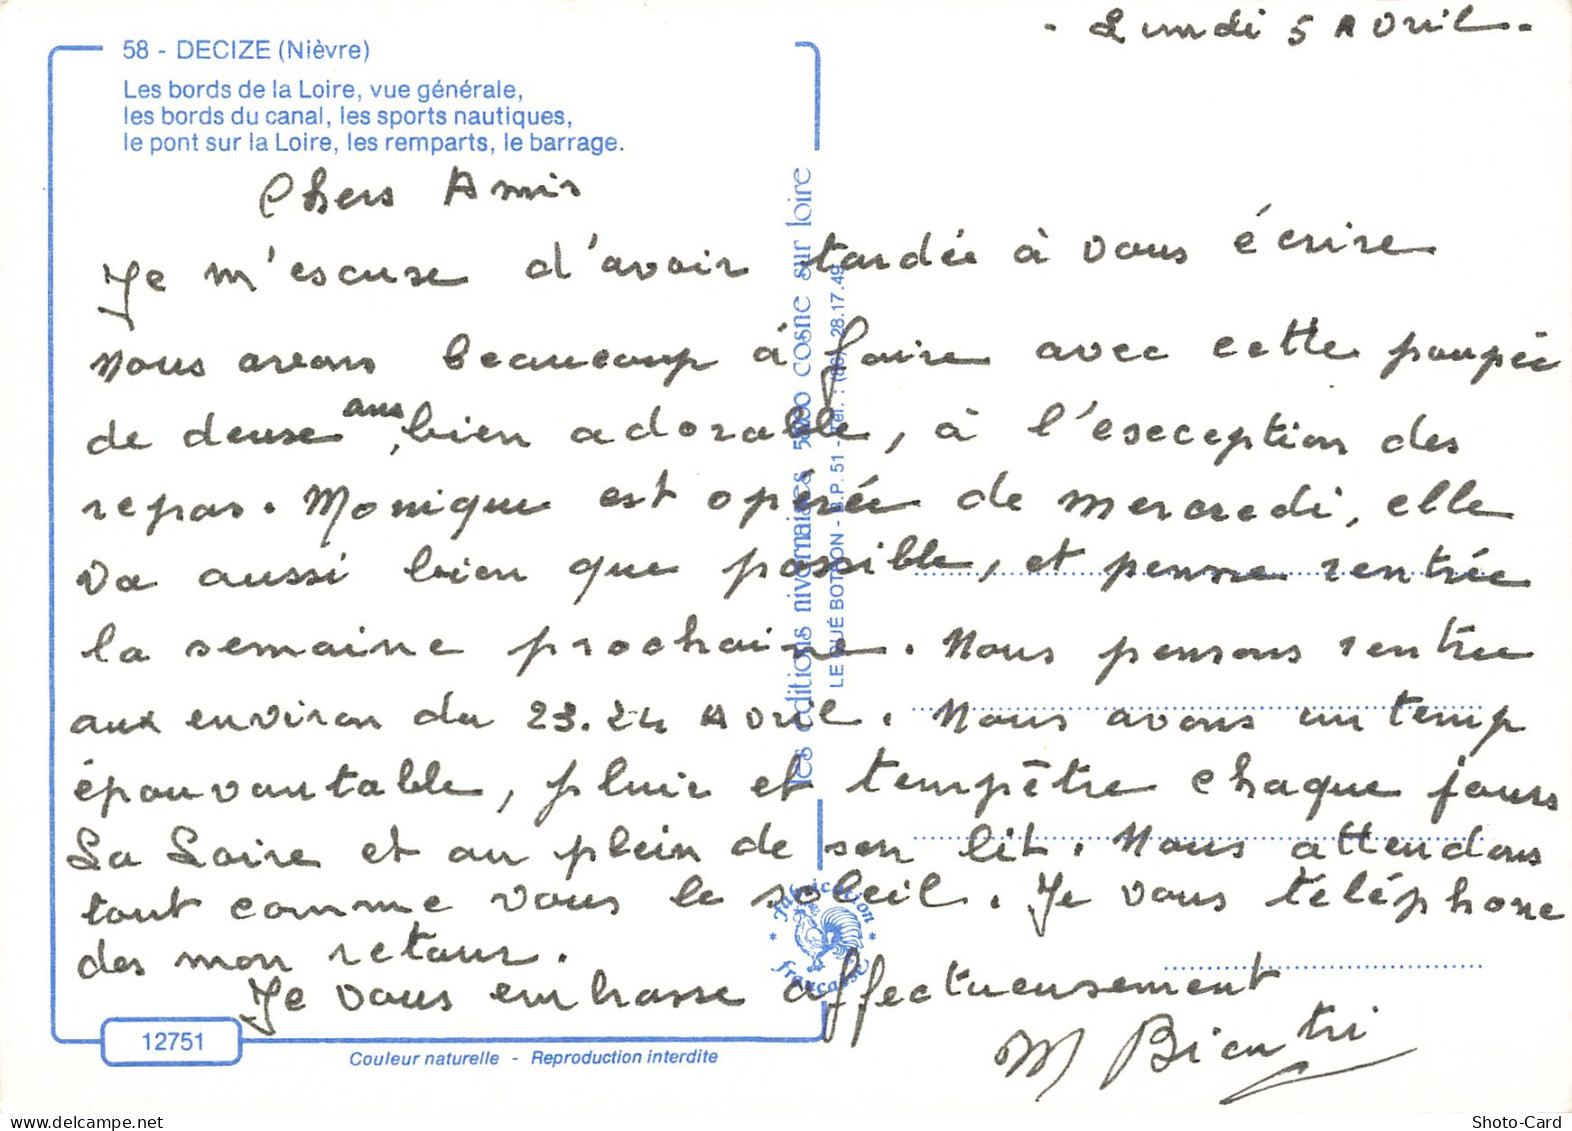 - Lundi 5 Avril -
58 - DECIZE (Nièvre)
Les bords de la Loire, vue générale,
les bords du canal, les sports nautiques,
le pont sur la Loire, les remparts, le barrage.
Chers Amis
Je m'escuse d'avoir tardée à vous écrire
nous avons beaucoup à faire avec cette poupée
de deuse ans, bien adorable, à l'esception des
repas. Monique est opérée de mercredi, elle
va aussi bien que possible, et pense rentrée
la semaine prochaine. Nous pensons rentrée
aux environ du 23.24 Avril. Nous avons un temp
épouvantable, pluir et tempêtre chaque jours
La Loire et au plein de son lit. Nous attendons
tout comme vous le soleil. Je vous téléphone
des mon retour.
Je vous embrasse affectueusement
M
les éditions nivernaises 58200 cosne sur loire
LE GUÉ BOTRON - B.P. 51 - Tél. : (86) 28.17.49
* fabrication *
française
12751
Couleur naturelle - Reproduction interdite
Shoto-Card